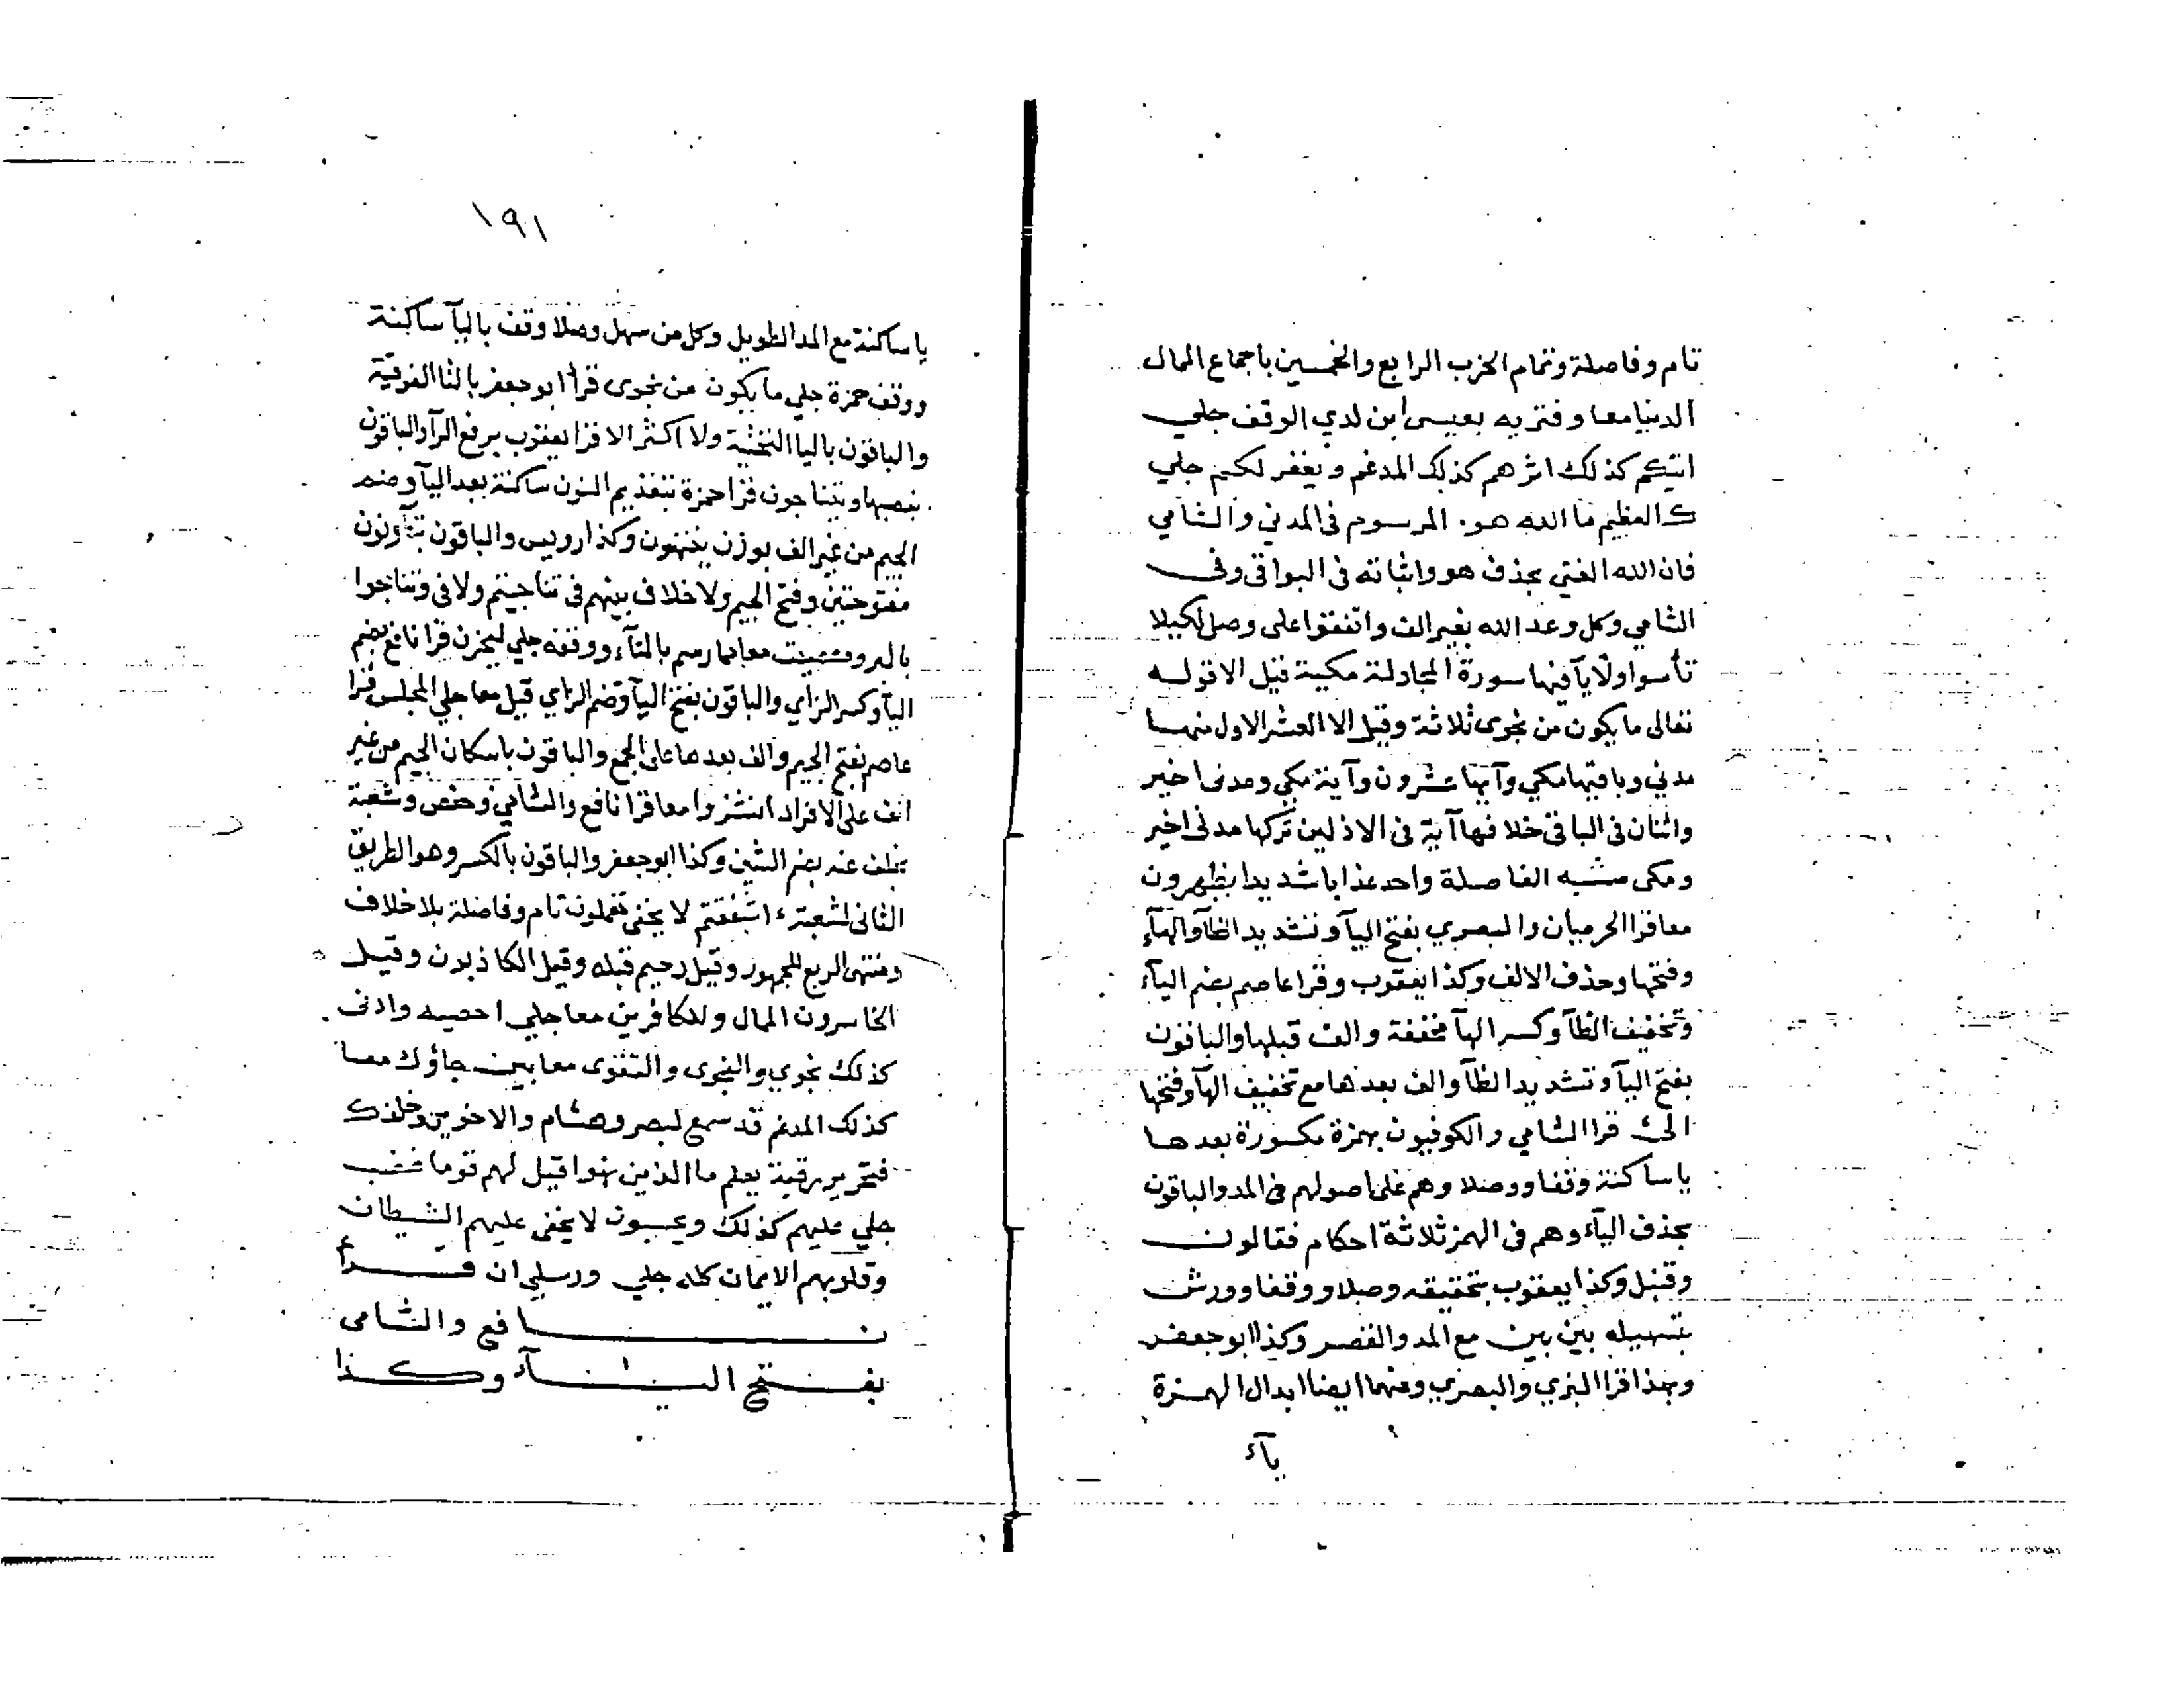 تام وفاصلة وتمام الحزب الرابع والخمسين باجماع الممال
الدنيا معا وفترىه بعيسى ابن لدي الوقف جلي
اتيكم كذلك اثرهم كذلك المدغم ويغفر لكم جلي
ك العظيم ما الله هو. المرسوم فى المدني والشامي
فان الله الغني بحذف هو واثباته فى البواقى وفى
الشامي وكل وعد الله بغير الف واتفقوا على وصل لكيلا
تأسوا ولا يآ فيها سورة المجادلة مكية قيل الا قوله
تعالى ما يكون من نجوى ثلاثة وقيل الا العشر الاول منها
مدني وباقيها مكي وآيها عشرون وآية مكي ومدنى اخير
واثنان فى الباقى خلافها آية فى الاذلين تركها مدنى اخير
ومكى مشبه الفاصلة واحد عذابا شديدا يظهرون
معا قرا الحرميان والبصري بفتح اليآ وتشديد الظآ والهآء
وفتحها وحذف الالف وكذا يعقوب وقرا عاصم بضم اليآء
وتخفيف الظآ وكسر الهآ مخففة والف قبلها والباقون
بفتح اليآ وتشديد الظآ والف بعدها مع تخفيف الهآ وفتحها
الئ قرا الشامي والكوفيون بهمزة مكسورة بعدها
يا ساكنة وقفا ووصلا وهم على اصولهم فى المد والباقون
بحذف اليآء وهم فى الهمز ثلاثة احكام فقالون
وقنبل وكذا يعقوب بتحقيقه وصلا ووقفا وورش
بتسهيله بين بين مع المد والقصر وكذا ابو جعفر
وبهذا قرا البزي والبصري وعنهما ايضا ابدال الهمزة
يآء
١٩١
يا ساكنة مع المد الطويل وكل من سهل وصلا وقف باليآ ساكنة
ووقف حمزة جلي ما يكون من نجوى قرأ ابو جعفر بالتا الفوقية
والباقون باليا التحتية ولا اكثر الا قرا يعقوب برفع الرآ والباقون
بنصبها ويتناجون قرا حمزة بتقديم النون ساكنة بعد اليآ وضم
الجيم من غير الف بوزن ينتهون وكذا رويس والباقون بتآ ونون
مفتوحتين وفتح الجيم ولا خلاف بينهم فى تناجيتم ولا فى وتناجوا
بالبر ومعصيت معا مما رسم بالتآء ووقفه جلي ليحزن قرا نافع بضم
اليآ وكسر الزاي والباقون بفتح اليآ وضم الزاي قيل معا جلي المجلس قرا
عاصم بفتح الجيم والف بعدها على الجمع والباقون باسكان الجيم من غير
الف على الافراد انشزوا معا قرا نافع والشامي وحفص وشعبة
بخلف عنه بضم الشين وكذا ابو جعفر والباقون بالكسر وهو الطريق
الثانى لشعبة ءاشفقتم لا يخفى تعملون تام وفاصلة بلا خلاف
ومنتهى الربع للجمهور وقيل رحيم قبله وقيل الكاذبون وقيل
الخاسرون الممال وللكافرين معا جلي احصيه وادنى
كذلك نجوي والنجوى والتقوى معا بين جاؤك معا
كذلك المدغم قد سمع لبصر وهشام والاخوين وخلف ك
فتحرير رقبة يعلم ما الذين نهوا قيل لهم قوما غضب
جلي عليهم كذلك ويحسبون لا يخفى عليهم الشيطان
وقلوبهم الايمان كله جلي ورسلي ان قرأ
نافع والشامى
بفتح اليآء وكذا